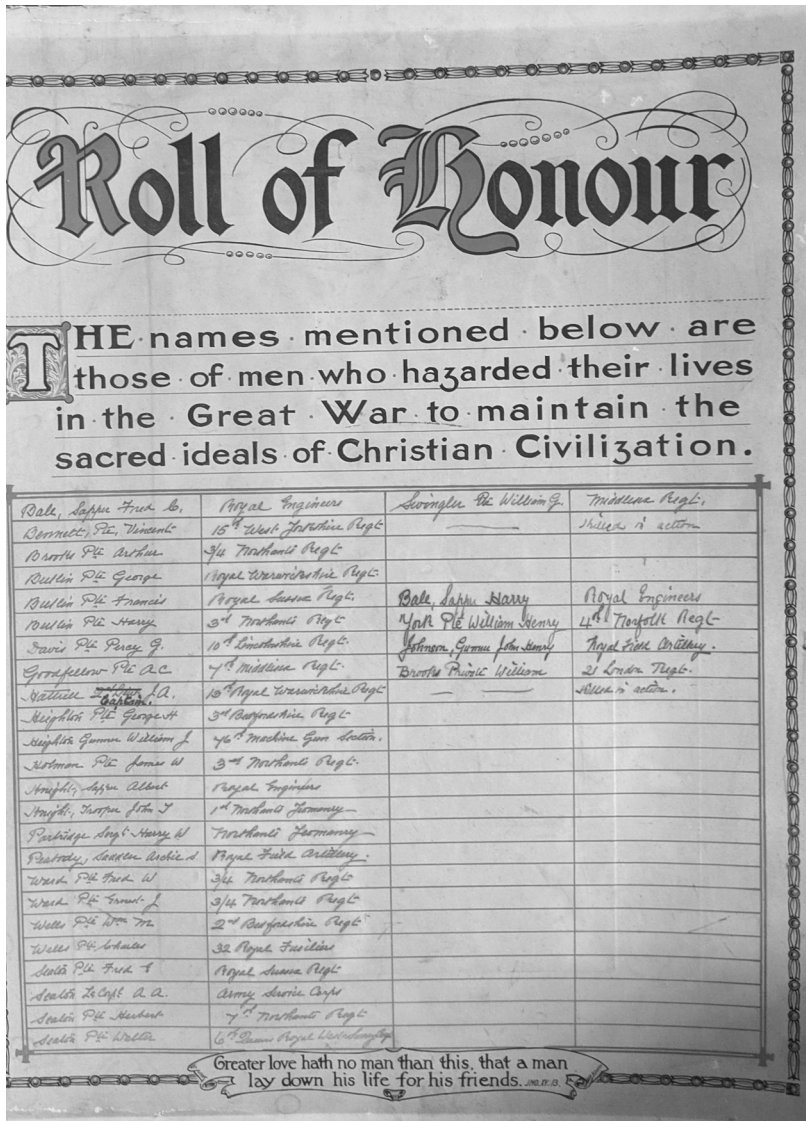 Roll of Honour
THE · names · mentioned · below · are
those · of · men · who · hazarded · their · lives
in · the · Great · War · to · maintain · the
sacred ideals of Christian · Civilization.
Bale, Sapper Fred C. Royal Engineers Swingler Pte William G. Middlesex Regt.
Bennett, Pte, Vincent 15th West Yorkshire Regt Killed in action
Brooks Pte Arthur 3/4 Northants Regt
Buslin Pte George Royal Warwickshire Regt.
Buslin Pte Francis Royal Sussex Regt. Bale, Sapper Harry Royal Engineers
Buslin Pte Harry 3rd Northants Regt York Pte William Henry 4th Norfolk Regt
Davis Pte Percy G. 10th Lincolnshire Regt. Johnson, Gunner John Henry Royal Field Artillery.
Goodfellow Pte A C 7th Middlesex Regt. Brooks Private William 21 London Regt.
Captain. J. A. 13th Royal Warwickshire Regt Killed in action.
Heighton Pte George H 3rd Bedfordshire Regt
Heighton Gunner William J 76th Machine Gun Section.
Holman Pte James W 3rd Northants Regt.
Knight, Sapper Albert Royal Engineers
Knight, Trooper John T 1st Northants Yeomanry
Partridge Sergt Harry W Northants Yeomanry
Peabody, Saddler Archie S Royal Field Artillery.
Ward Pte Fred W 3/4 Northants Regt
Ward Pte Ernest J 3/4 Northants Regt
Wells Pte Wm M 2nd Bedfordshire Regt
Wells Pte Charles 32 Royal Fusiliers
Seaton Pte Fred Royal Sussex Regt
Seaton Le Corpl A A. Army Service Corps
Seaton Pte Herbert 7th Northants Regt
Seaton Pte Walter 6th Queens Royal West Surrey Regt
Greater love hath no man than this, that a man
lay down his life for his friends. JNO. 15. 13.